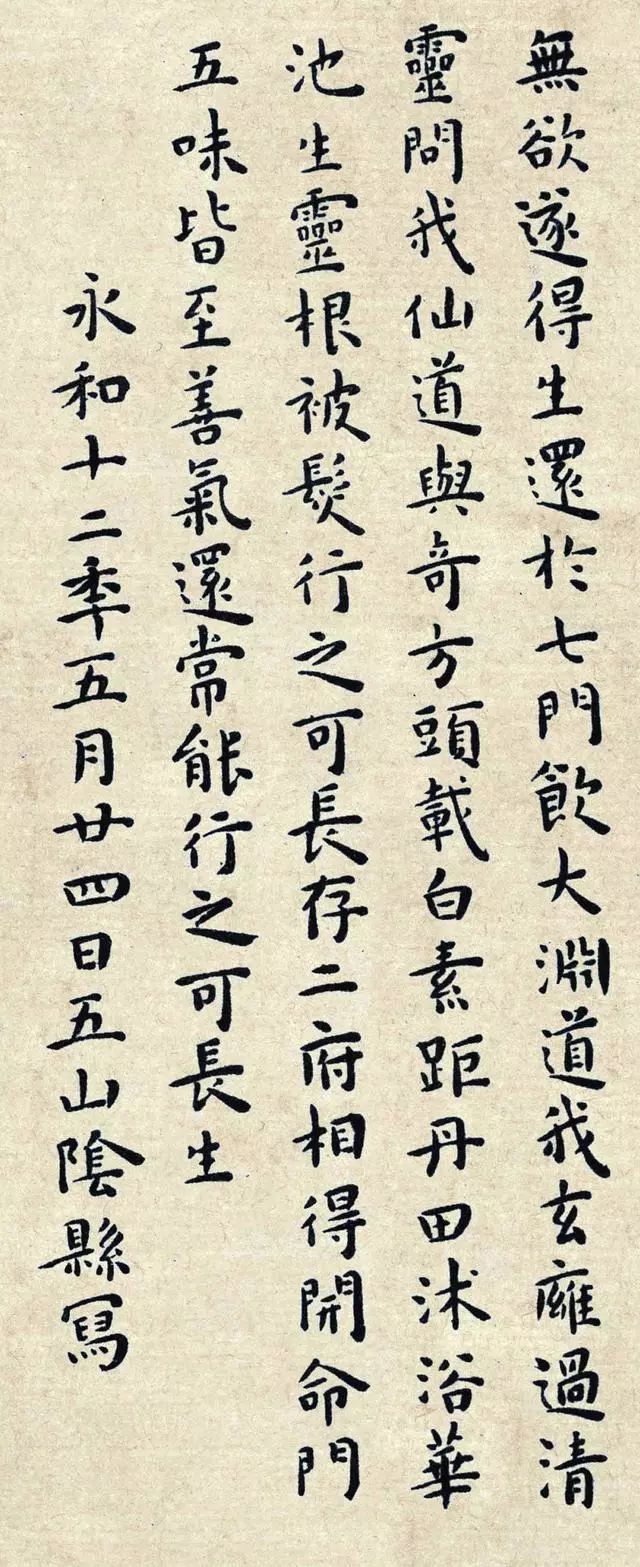 無欲遂得生還於七門飲大淵道我玄廱過清
靈問我仙道與奇方頭載白素距丹田沐浴華
池生靈根被髮行之可長存二府相得開命門
五味皆至善氣還常能行之可長生
永和十二年五月廿四日五山陰縣寫